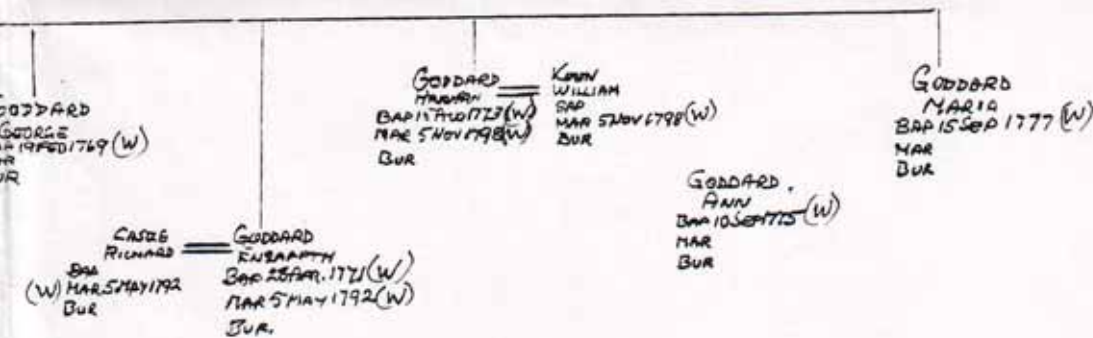 GODDARD
GEORGE
19 FEB 1769 (W)
CASTLE
RICHARD
BAP
(W) MAR 5 MAY 1792
BUR
GODDARD
BAP 28 APR. 1771 (W)
MAR 5 MAY 1792 (W)
BUR.
GODDARD
HANNAH
BAP 15 AUG 1773 (W)
MAR 5 NOV 1798 (W)
BUR
WILLIAM
BAP
MAR 5 NOV 1798 (W)
BUR
GODDARD.
ANN
BAP 10 SEP 1775 (W)
MAR
BUR
GODDARD
MARIA
BAP 15 SEP 1777 (W)
MAR
BUR